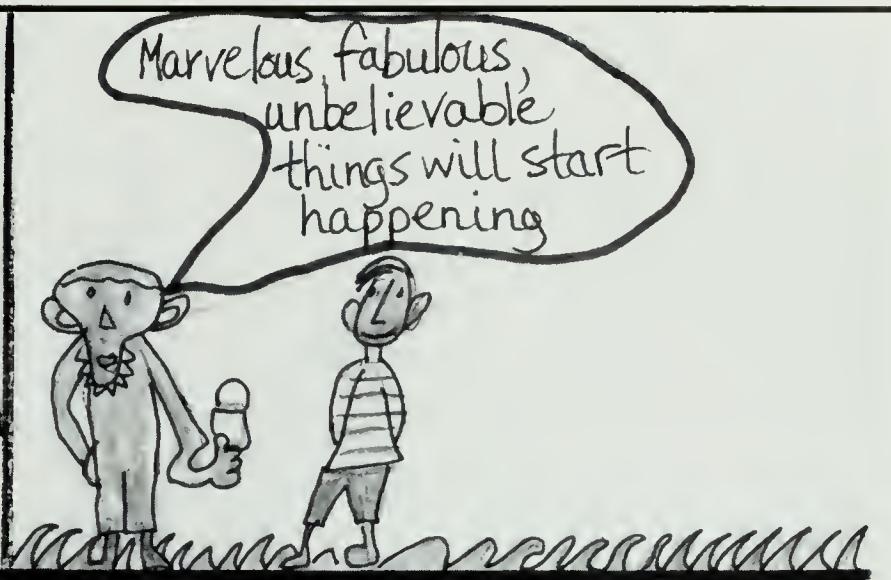 Marvelous, fabulous,
unbelievable
things will start
happening